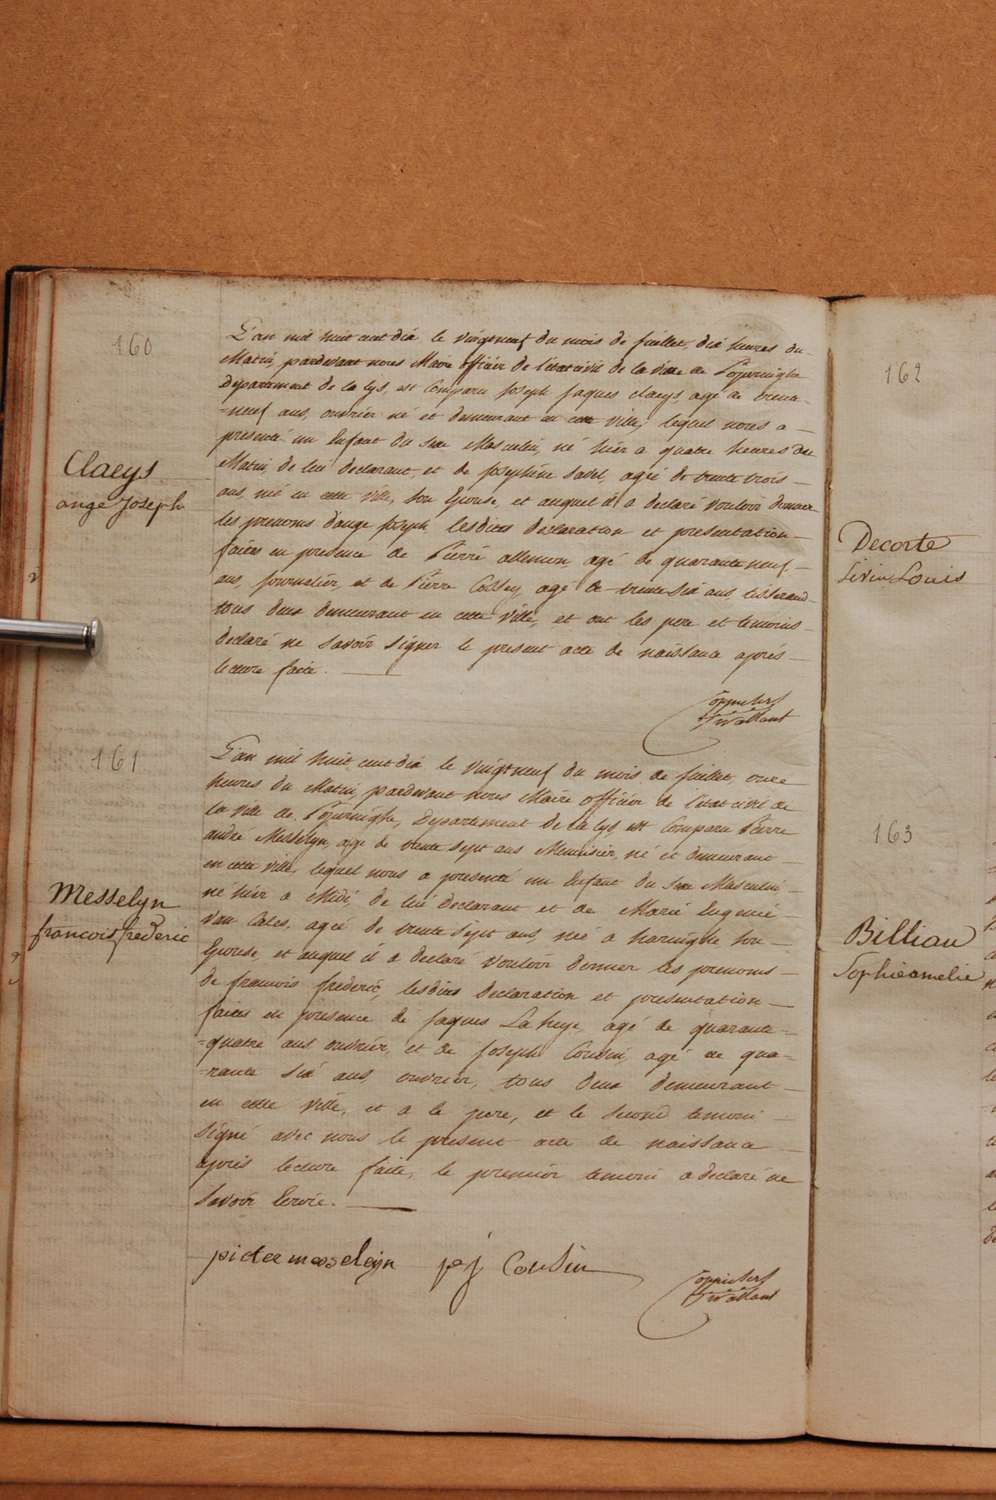 160
Claeys
ange Joseph
L'an mil huit cent dix le vingtneuf du mois de juillet, dix heures du
Matin, pardevant nous Maire officier de l'etat civil de la ville de Poperinghe
departement de la Lys, est Comparu Joseph Jaques Claeys, agé de trente
=neuf ans, ouvrier né et demeurant en cette ville, lequel nous a
presenté un Enfant du sexe Masculin, né hier a quatre heures du
Matin, de lui declarant, et de Josephine agée de trente trois
ans, née en cette ville, son Epouse, et auquel il a declaré vouloir donner
les prenoms d'ange Joseph, lesdites declaration et presentation
faites en presence de Pierre agé de quarante neuf
ans, journalier, et de Pierre agé de trente six ans,
tous deux demeurant en cette ville, et ont les pere et temoins
declaré ne savoir signer le present acte de naissance aprés
lecture faite.
161
Messelyn
francois frederic
L'an mil huit cent dix le vingtneuf du mois de juillet, onze
heures du Matin, pardevant nous Maire officier de l'etat civil de
la ville de Poperinghe, Departement de la Lys est Comparu Pierre
andré Messelyn, agé de trente sept ans Menuisier, né et demeurant
en cette ville, lequel nous a presenté un Enfant du sexe Masculin
né hier a Midi, de lui declarant et de Marie Eugenie
Van Cales, agée de trente sept ans, née a haringhe son
Epouse, et auquel il a declaré vouloir donner les prenoms
de francois frederic, lesdites declaration et presentation
faites en presence de Jaques Laheye, agé de quarante
=quatre ans ouvrier, et de Joseph Cousin, agé de qua=
=rante six ans, ouvrier, tous deux demeurant
en cette ville, et a le pere, et le second temoin
signé avec nous le present acte de naissance
aprés lecture faite, le premier temoin a declaré ne
savoir Ecrire.
pieter messeleyn pj Cousin
162
Decorte
Livin Louis
163
Billiau
Sophie amelie